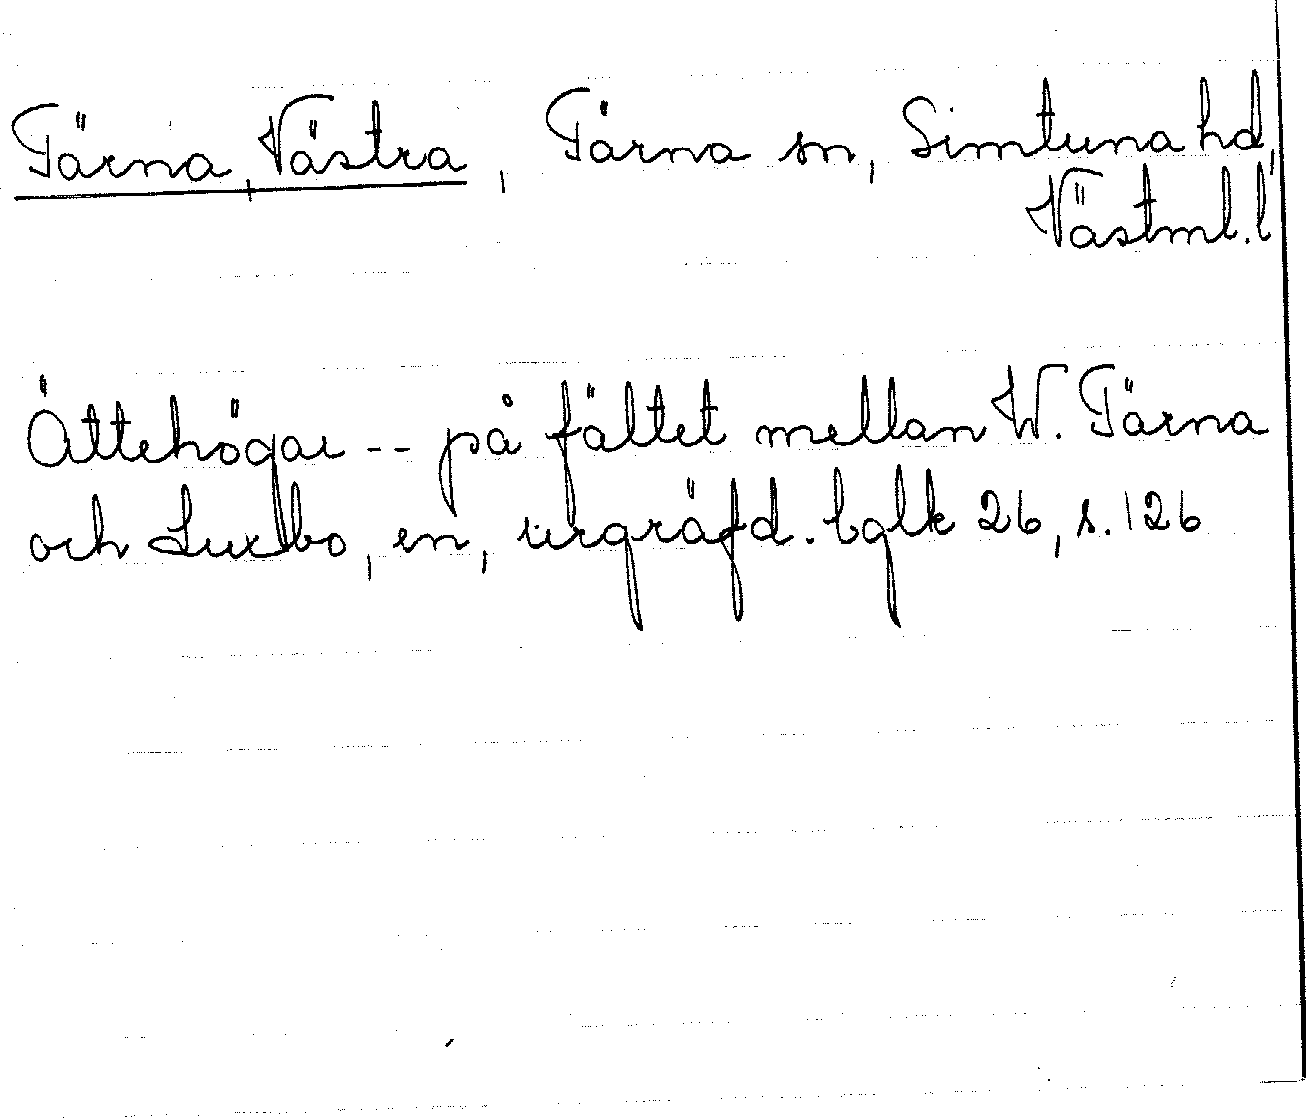 Tärna, Västra, Tärna sn, Simtuna hd,
Västml. l
Ättehögar -- på fältet mellan W. Tärna
och Luxbo, en, urgräfd. bglk 26, s. 126